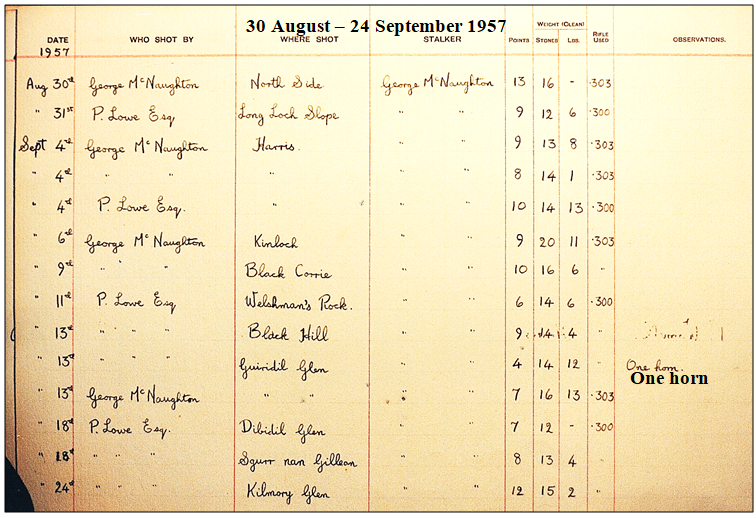 30 August – 24 September 1957
DATE WHO SHOT BY WHERE SHOT STALKER POINTS WEIGHT (CLEAN) STONES LBS. RIFLE USED OBSERVATIONS.
1957
Aug 30th George McNaughton North Side George McNaughton 13 16 - .303
" 31st P. Lowe Esq Long Loch Slope " " 9 12 6 .300
Sept 4th George McNaughton Harris. " " 9 13 8 .303
" 4th " " " " " 8 14 1 .303
" 4th P. Lowe Esq. " " " 10 14 13 .300
" 6th George McNaughton Kinloch " " 9 20 11 .303
" 9th " " " Black Corrie " " 10 16 6 "
" 11th P. Lowe Esq Welshman's Rock. " " 6 14 6 .300
" 13th " " " Black Hill " " 9 14 4 "
" 13th " " " Guiridil Glen " " 4 14 12 " One horn.
One horn
" 13th George McNaughton " " " " 7 16 13 .303
" 18th P. Lowe Esq. Dibidil Glen " " 7 12 - .300
" 18th " " " Sgurr nan Gillean " " 8 13 4 "
" 24th " " " Kilmory Glen " " 12 15 2 "